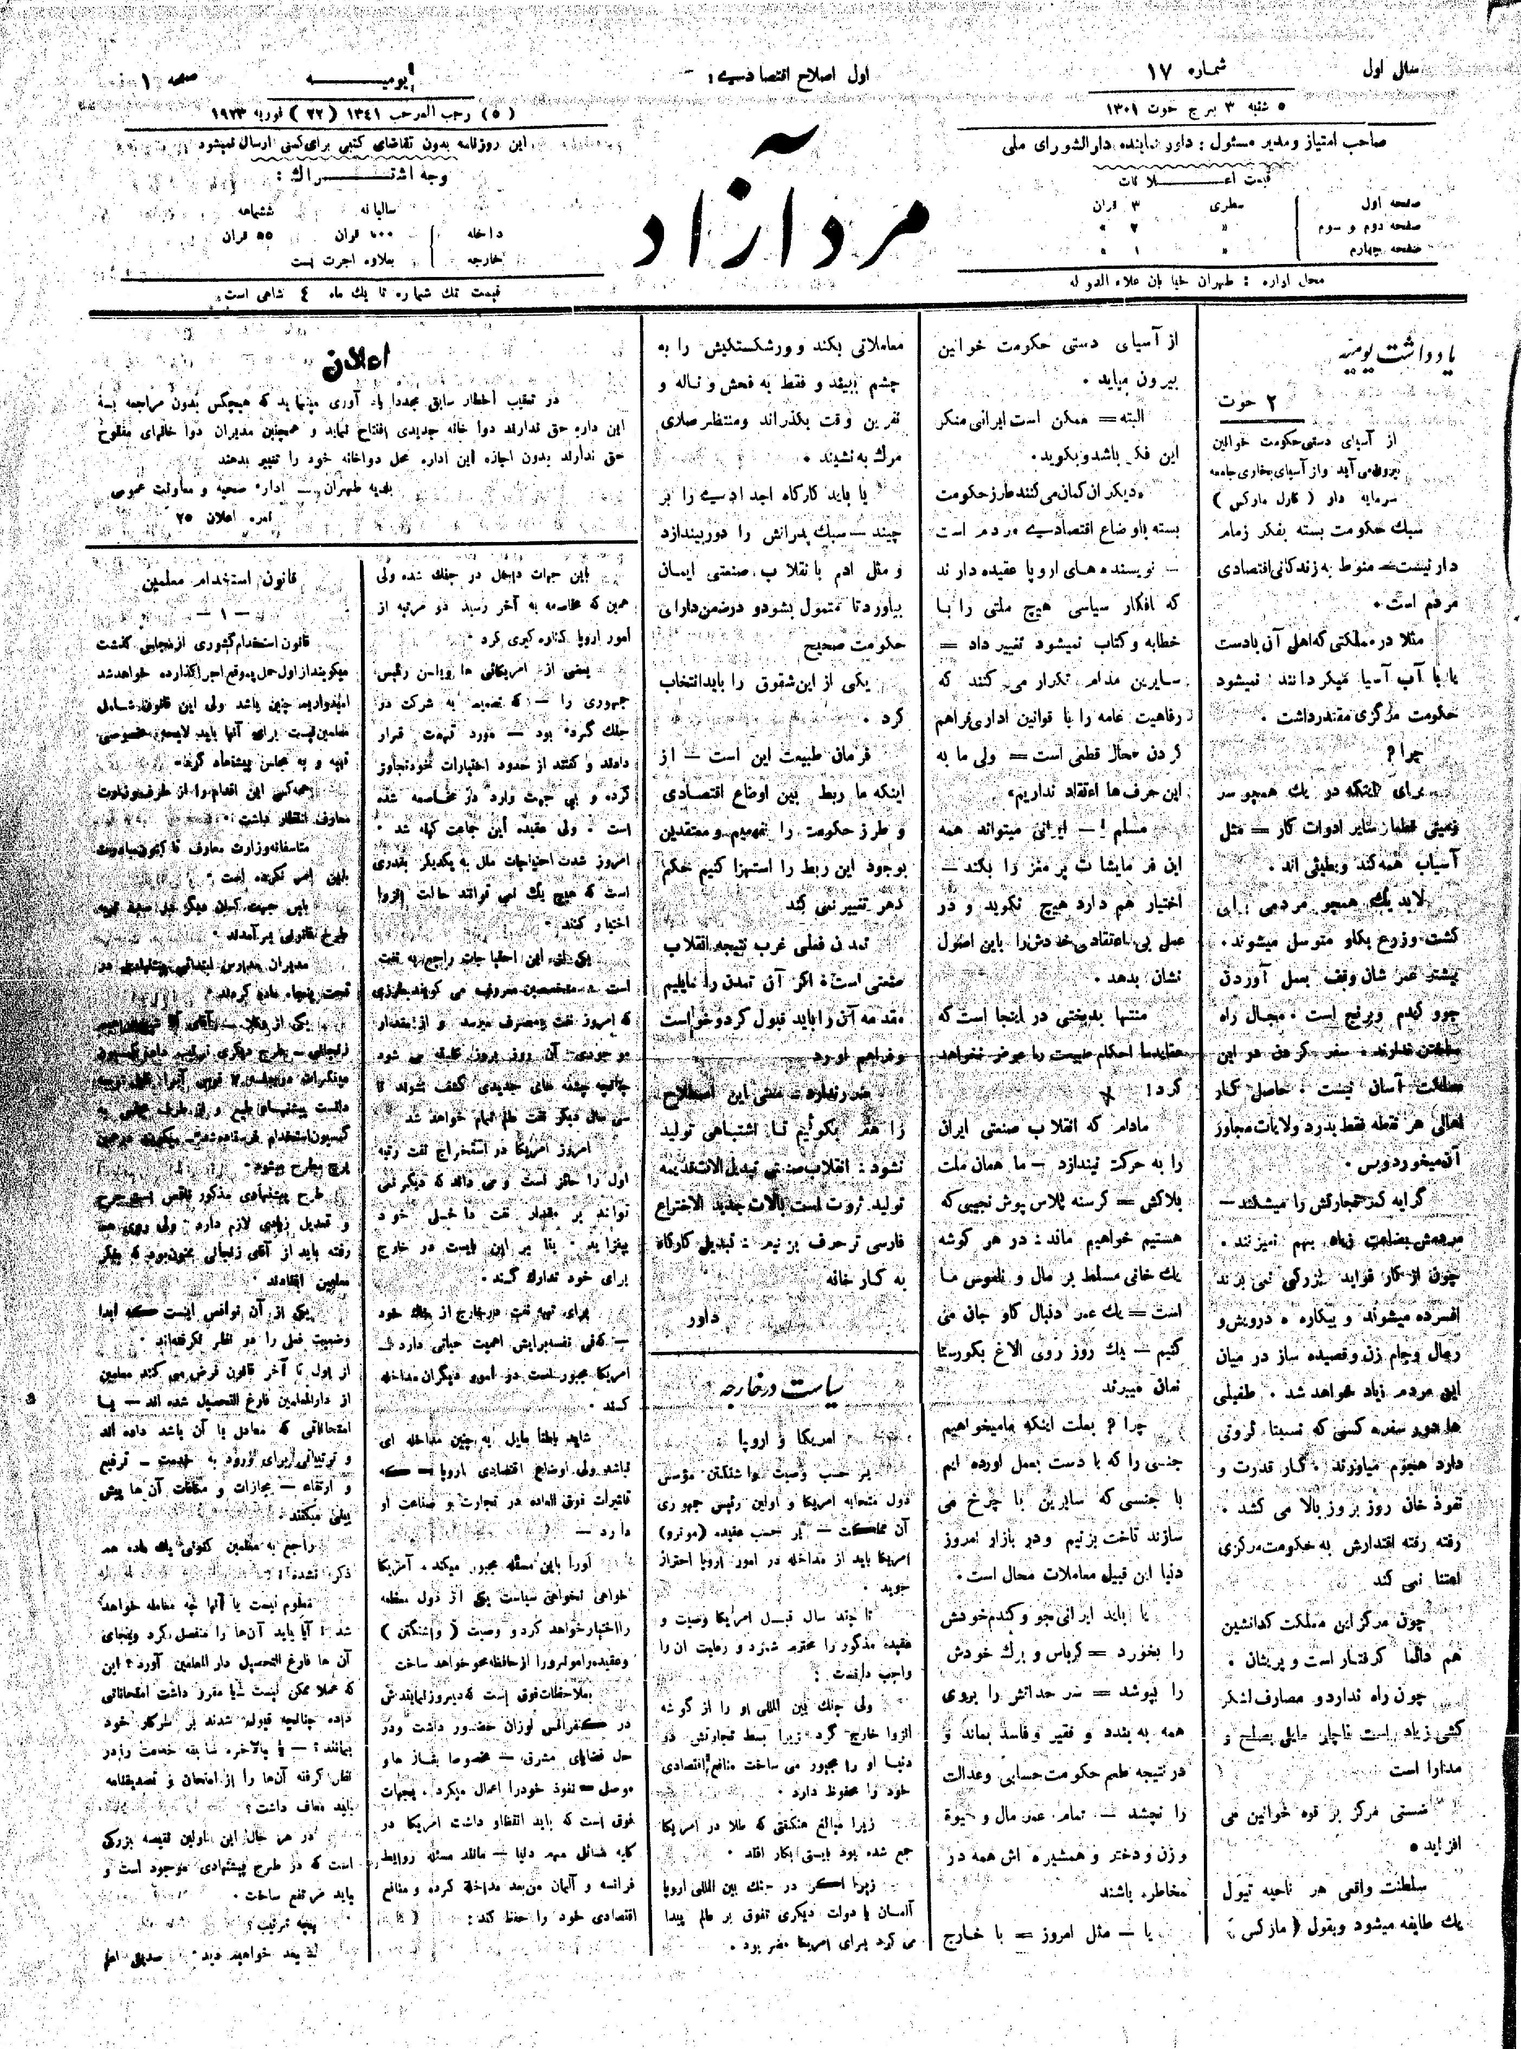 سال اول
شماره ۱۷
اول اصلاح اقتصادی؛
یومیه
صفحه ۱
۵ شنبه ۳ برج حوت ۱۳۰۱
(۵) رجب المرجب ۱۳۴۱ (۲۲) فوریه ۱۹۲۳
صاحب امتیاز و مدیر مسئول : داور نماینده دارالشورای ملی
قیمت اعلانات
صفحه اول سطری ۳ قران
صفحه دوم و سوم « ۲ «
صفحه چهارم « ۱ «
محل اداره : طهران خیابان علاء الدوله
مرد آزاد
این روزنامه بدون تقاضای کتبی برای کسی ارسال نمیشود
وجه اشتراك :
سالیانه ششماهه
داخله ۱۰۰ قران ۵۵ قران
خارجه بعلاوه اجرت پست
قیمت تك شماره تا یك ماه ٤ شاهی است
یادداشت یومیه
۲ حوت
از آسیای دستی حکومت خوانین
بیرون می آید و از آسیای بخاری جامعه
سرمایه دار (کارل مارکس)
سبك حکومت بسته بفکر زمام
دار نیست = منوط به زندگانی اقتصادی
مردم است.
مثلا در مملکتی که اهل آن با دست
یا با آب آسیا میگردانند : نمیشود
حکومت مرکزی مقتدر داشت .
چرا ؟
برای اینکه در یك همچو سر
زمینی قطعاً سایر ادوات کار = مثل
آسیاب همه کند و بطیئی اند .
لابد یك همچو مردمی : این
کشت وزرع بگاو متوسل میشوند .
بیشتر عمر شان وقف بعمل آوردن
جو و گندم و برنج است . مجال راه
ساختن ندارند . سفر کردن در این
مملکت آسان نیست . حاصل کار
اهالی هر نقطه فقط بدرد ولایات مجاور
آن میخورد و بس .
گرایه کمر تجارتش را میشکند –
مردمش بضاعت زیاد بهم نمیزنند .
چون از کار فواید بزرگی نمی برند
افسرده میشوند و بیکاره . درویش و
رمال و جام زن و قصیده ساز در میان
این مردم زیاد خواهد شد . طفیلی
ها دور سفره کسی که نسبتا ثروتی
دارد هجوم میاورند . کار قدرت و
نفوذ خان روز بروز بالا می کشد .
رفته رفته اقتدارش به حکومت مرکزی
اعتنا نمی کند
چون مرکز این مملکت گدانشین
هم دائما گرفتار است و پریشان .
چون راه ندارد و مصارف لشکر
کشی زیاد است ناچار مایل بصلح و
مدارا است
سستی مرکز بر قوه خوانین می
افزاید .
سلطنت واقعی هر ناحیه تیول
یك طایفه میشود و بقول (مارکس)
از آسیای دستی حکومت خوانین
بیرون میاید .
البته = ممکن است ایرانی منکر
این فکر باشد و بگوید .
«دیگران گمان می کنند طرز حکومت
بسته باوضاع اقتصادی مردم است
– نویسنده های اروپا عقیده دارند
که افکار سیاسی هیچ ملتی را با
خطابه و کتاب نمیشود تغییر داد =
سایرین مدام تکرار می کنند که
رفاهیت عامه را با قوانین اداری فراهم
کردن محال قطعی است = ولی ما به
این حرف ها اعتقاد نداریم»
مسلم ! – ایرانی میتواند همه
این فرمایشات پر مغز را بکند –
اختیار هم دارد هیچ نگوید و در
عمل بی اعتقادی خودش را باین اصول
نشان بدهد .
منتها بدبختی در اینجا است که
عقاید ما احکام طبیعت را عوض نخواهد
کرد !
مادام که انقلاب صنعتی ایران
را به حرکت نیندازد – ما همان ملت
بلاکش = گرسنه پلاس پوش نجیبی که
هستیم خواهیم ماند : در هر گوشه
یك خانی مسلط بر مال و نفوس ما
است = یك عمر دنبال گاو جان می
کنیم – یك روز روی الاغ بگورستا
نمان میبرند
چرا ؟ بعلت اینکه ما میخواهیم
جنسی را که با دست بعمل اورده ایم
با جنسی که سایرین با چرخ می
سازند تاخت بزنیم و در بازار امروز
دنیا این قبیل معاملات محال است .
یا باید ایرانی جو و گندم خودش
را بخورد = کرباس و برك خودش
را بپوشد = سر حداتش را بروی
همه به بندد و فقیر و فاسد بماند و
در نتیجه طعم حکومت حسابی و عدالت
را نچشد – تمام عمر مال و حیوة
و زن و دختر و همشیره اش همه در
مخاطره باشند
یا – مثل امروز = با خارج
معاملاتی بکند و ورشکستگیش را به
چشم ببیند و فقط به فحش و ناله و
نفرین وقت بگذراند و منتظر صلای
مرك به نشیند .
یا باید کارگاه اجدادی را بر
چیند – سبك پدرانش را دور بیندازد
و مثل ادم بانقلاب صنعتی ایمان
بیاورد تا متمول بشود و در ضمن دارای
حکومت صحیح
یکی از این شقوق را باید انتخاب
کرد .
فرمان طبیعت این است – از
اینکه ما ربط بین اوضاع اقتصادی
و طرز حکومت را نفهمیم و معتقدین
بوجود این ربط را استهزا کنیم حکم
دهر تغییر نمی کند
تمدن فعلی غرب نتیجه انقلاب
صنعتی است : اگر آن تمدن را مایلیم
مقدمه آن را باید قبول کرد و خواست
و فراهم اورد
ضرر ندارد معنی این اصطلاح
را هم بگوئیم تا اشتباهی تولید
نشود : انقلاب صنعتی تبدیل الات قدیمه
تولید ثروت است بالات جدید الاختراع
فارسی تر حرف بزنیم : تبدیل کارگاه
به کارخانه
داور
سیاست در خارجه
امریکا و اروپا
بر حسب وصیت واشنگتن مؤسس
دول متحده امریکا و اولین رئیس جمهوری
آن مملکت – بر حسب عقیده (مونرو)
امریکا باید از مداخله در امور اروپا احتراز
جوید .
تا چند سال قبل امریکا وصیت و
عقیده مذکور را محترم شمرد و رعایت ان را
واجب دانست :
ولی جنك بین المللی او را از گوشه
انزوا خارج کرد زیرا بسط تجارتش در
دنیا او را مجبور می ساخت منافع اقتصادی
خود را محفوظ دارد .
زیرا مبالغ هنگفتی که طلا در امریکا
جمع شده بود بایستی بکار افتد .
زیرا اگر در جنك بین المللی اروپا
آلمان یا دولت دیگری تفوق بر عالم پیدا
می کرد برای امریکا مضر بود .
اعلان
در تعقیب اخطار سابق مجددا یاد آوری مینماید که هیچکس بدون مراجعه به
این داره حق ندارند دوا خانه جدیدی افتتاح نماید و همچنین مدیران دوا خانهای مفتوح
حق ندارند بدون اجازه این اداره محل دواخانه خود را تغییر بدهند
بلدیه طهران – اداره صحیه و معاونت عمومی
نمره اعلان ۲۵
باین جهات داخل در جنك شده ولی
همین که مخاصمه به آخر رسید دو مرتبه از
امور اروپا کناره گیری کرد .
بعضی از امریکائی ها ویلسن رئیس
جمهوری را – که تصمیم به شرکت در
جنك گرده بود – مورد تهمت قرار
دادند و گفتند از حدود اختیارات خود تجاوز
کرده و بی جهت وارد در مخاصمه شده
است . ولی عقیده این جماعت کهنه شد .
امروز شدت احتیاجات ملل به یکدیگر بقدری
است که هیچ یك نمی توانند حالت انزوا
اختیار کنند .
یکی از این احتیاجات راجع به نفت
است . متخصصین معروف می گویند بطرزی
که امروز نفت بمصرف میرسد و از مقدار
موجودی آن روز بروز کاسته می شود
چنانچه چشمه های جدیدی کشف نشوند تا
سی سال دیگر نفت عالم تمام خواهد شد
امروز امریکا در استخراج نفت رتبه
اول را حائز است و می داند که دیگر نمی
تواند بر مقدار نفت داخلی خود
بیفزاید . بنا بر این بایست در خارج
برای خود تدارك کند .
برای تهیه نفت در خارج از خاك خود
– که فی نفسه برایش اهمیت حیاتی دارد –
امریکا مجبور است در امور دیگران مداخله
کند .
شاید باطنا مایل به چنین مداخله ای
نباشد ولی اوضاع اقتصادی اروپا – که
تاثیرات فوق العاده در تجارت و صناعت او
دارد –
اورا باین مسئله مجبور میکند . آمریکا
خواهی نخواهی سیاست یکی از دول معظمه
را اختیار خواهد کرد و وصیت (واشنگتن)
و عقیده مونرو را از حافظه محو خواهد ساخت
بملاحظات فوق است که دیروز نماینده‌ش
در کنفرانس لوزان حضور داشت و در
حل قضایای مشرق – مخصوصا بغاز ها و
موصل = نفوذ خود را اعمال میکرد . بجهات
فوق است که باید انتظار داشت امریکا در
کلیه مسائل مهم دنیا – مانند مسئله روابط
فرانسه و آلمان من بعد مداخله کرده و منافع
اقتصادی خود را حفظ کند :
قانون استخدام معلمین
– ۱ –
قانون استخدام کشوری از مجلس گذشت
میگویند از اول حمل بموقع اجرا گذارده خواهد شد
امیدواریم چنین باشد ولی این قانون شامل
معلمین نیست برای آنها باید لایحه خصوصی
تهیه و به مجلس پیشنهاد گردد .
همه کس این اقدام را از طرف وزارت
معارف انتظار داشت .
متاسفانه وزارت معارف تا کنون مبادرت
باین امر نکرده است .
باین جهت کسان دیگر در صدد تهیه
طرح قانونی برآمدند .
مدیران مدارس ابتدائی پیشنهادی در
تحت پنجاه ماده کردند .
دانست پیشنهاد طبع و از طرف مجلس به
طرح پیشنهادی مذکور ناقص است جرح
و تعدیل زیادی لازم دارد . ولی روی هم
رفته باید از آقای زنجانی ممنون بود که بفکر
معلمین افتادند .
یکی از آن نواقص اینست که ابدا
وضعیت فعلی را در نظر نگرفته‌اند .
از اول تا آخر قانون فرض می کند معلمین
از دارالمعلمین فارغ التحصیل شده اند – یا
امتحاناتی که معادل با آن باشد داده اند
و ترتیباتی برای ورود به خدمت – ترفیع
و ارتقاء – مجازات و مکافات آن ها پیش
بینی میکند .
راجع به معلمین کنونی یك ماده هم
ذکر نشده :
معلوم نیست با آنها چه معامله خواهد
شد : آیا باید آن‌ها را منفصل کرد و بجای
آن ها فارغ التحصیل دار المعلمین آورد ؟ این
که عملا ممکن نیست – یا مقرر داشت امتحاناتی
داده چنانچه قبول شدند بر سرکار خود
بمانند ؟ – یا بالاخره سابقه خدمت را در
نظر گرفته آن‌ها را از امتحان و تصدیقنامه
باید معاف داشت ؟
در هر حال این اولین نقیصه بزرگی
است که در طرح پیشنهادی موجود است و
باید مرتفع ساخت .
بچه ترتیب ؟
بعد خواهید دید .